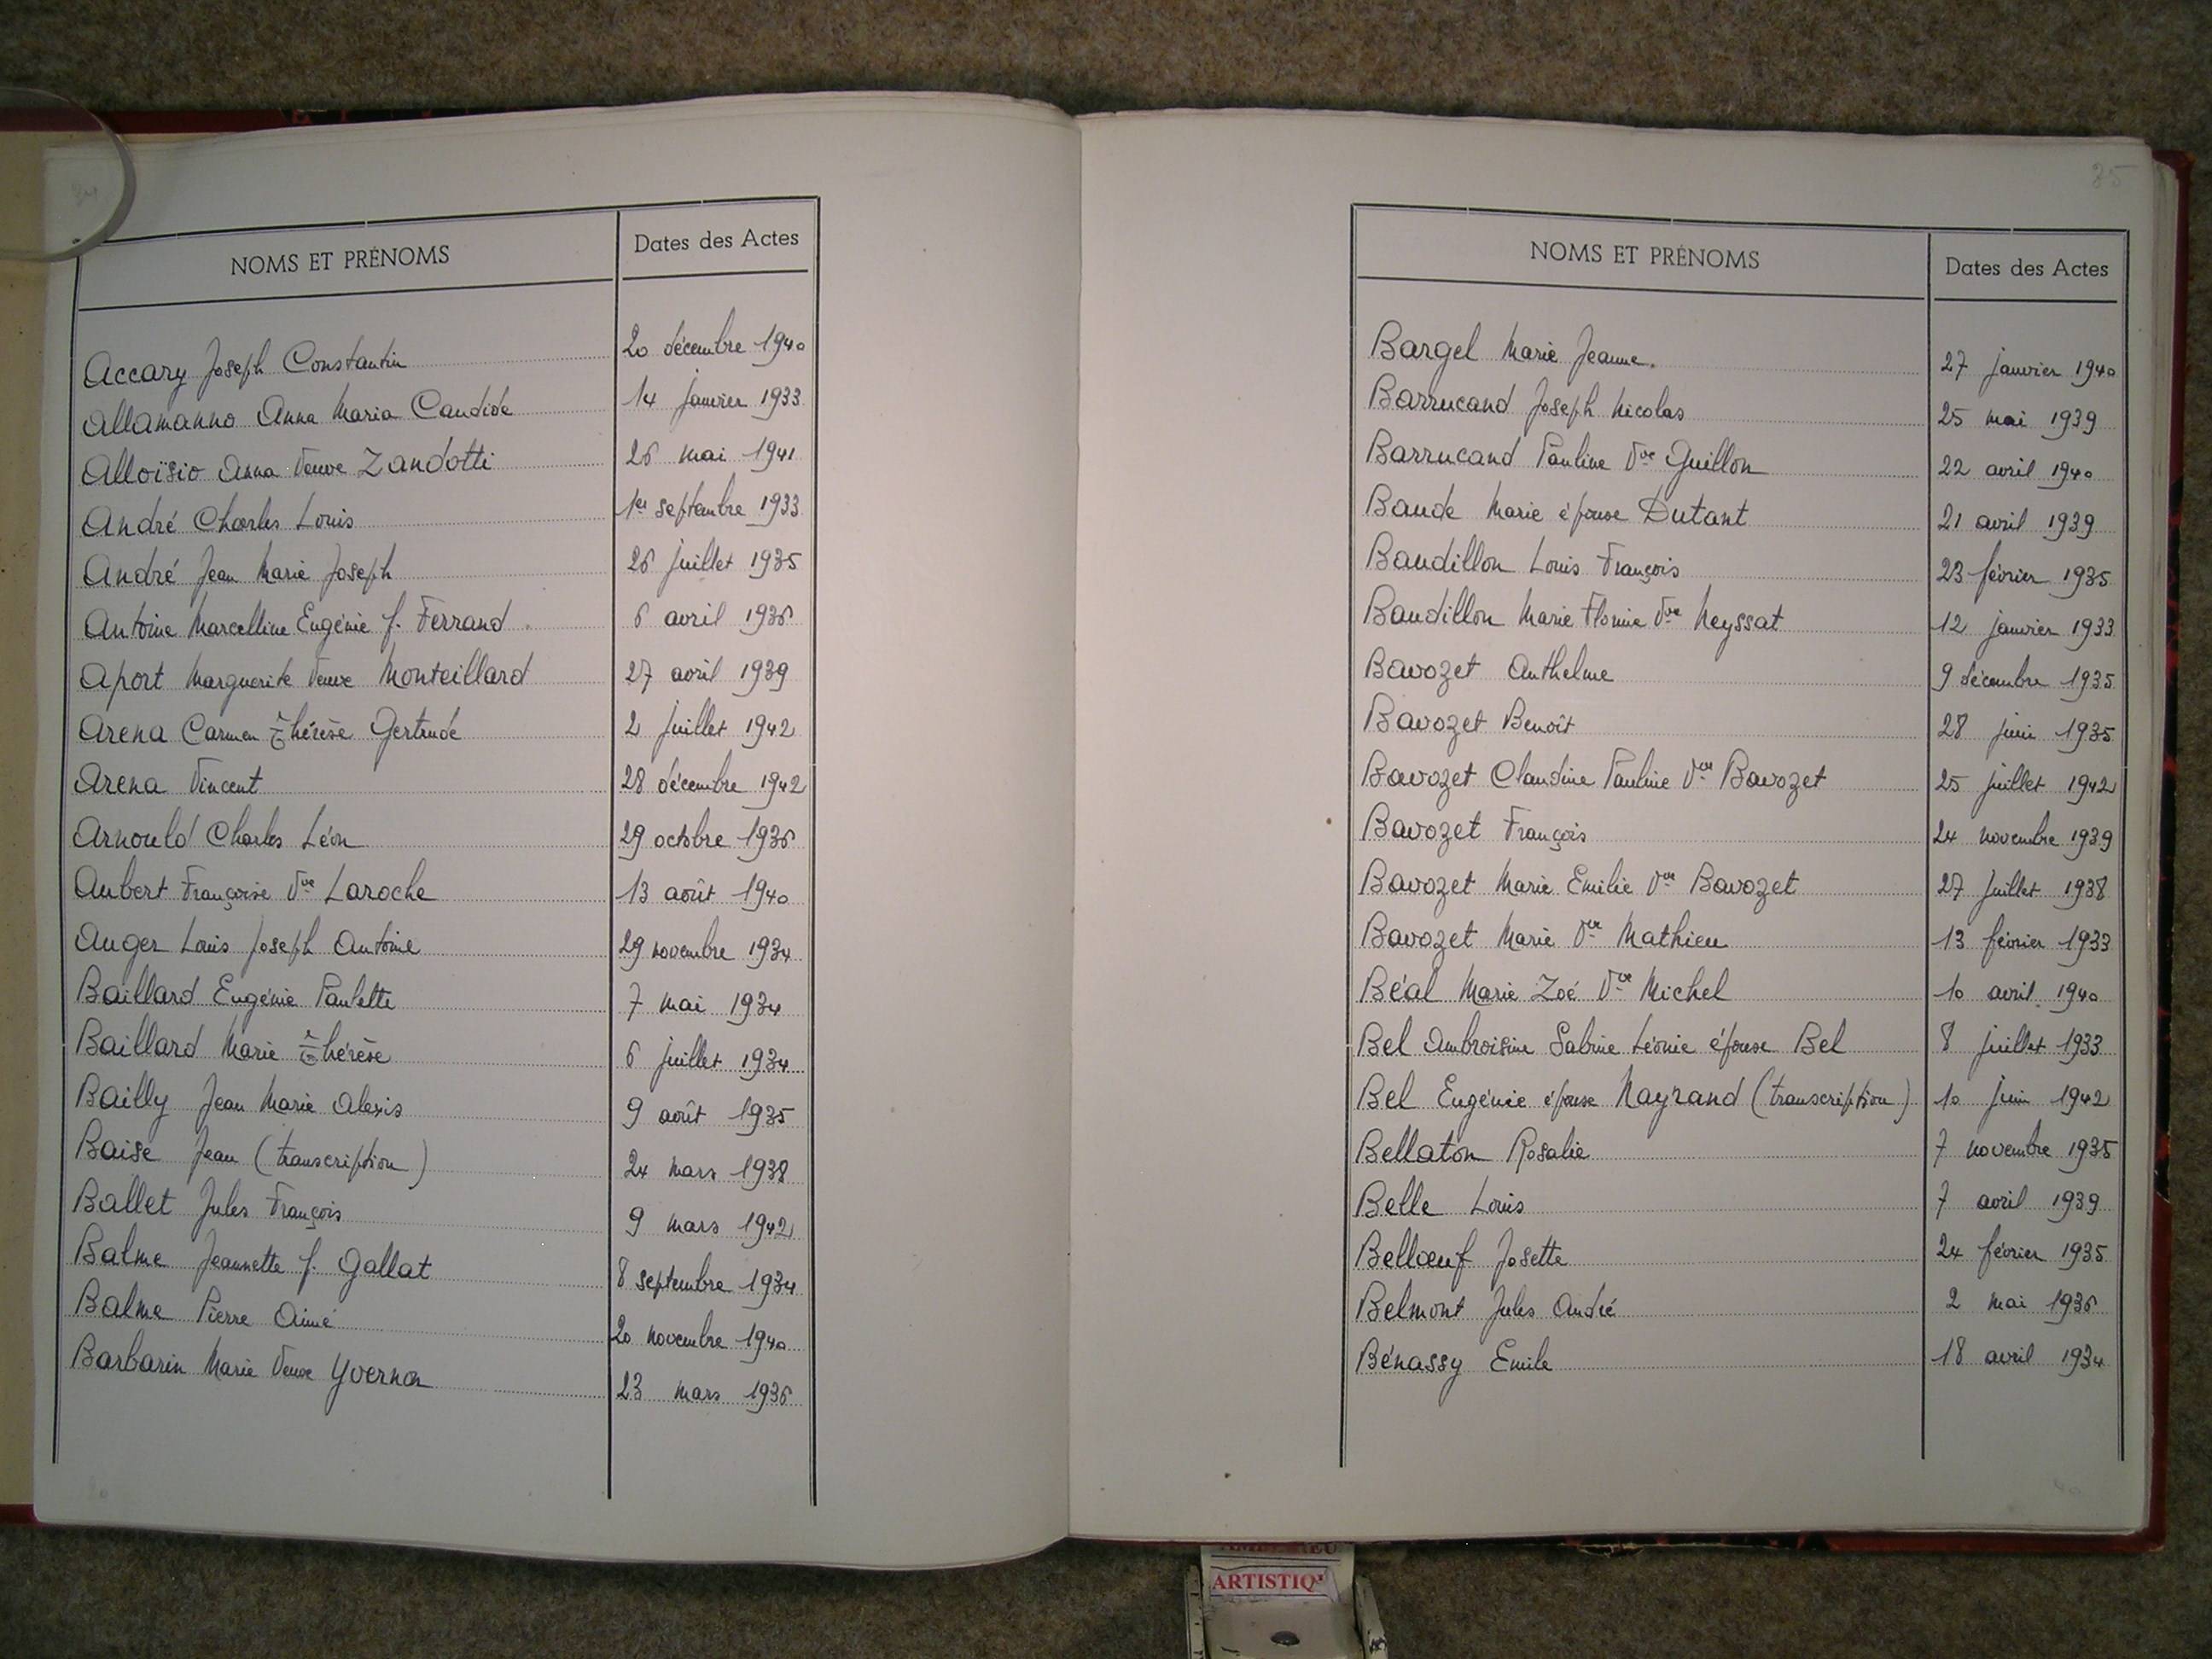 NOMS ET PRÉNOMS Dates des Actes
Accary Joseph Constantin 20 décembre 1940
Allamanno Anna Maria Candide 14 janvier 1933
Alloïsio Anna Veuve Zandotti 26 mai 1941
André Charles Louis 1er septembre 1933
André Jean Marie Joseph 26 juillet 1935
Antoine Marcelline Eugénie f. Ferrand 6 avril 1936
Aport Marguerite Veuve Monteillard 27 avril 1939
Arena Carmen Thérèse Gertrude 2 juillet 1942
Arena Vincent 28 décembre 1942
Arnould Charles Léon 29 octobre 1936
Aubert Françoise Vve Laroche 13 août 1940
Auger Louis Joseph Antoine 29 novembre 1934
Baillard Eugénie Paulette 7 mai 1934
Baillard Marie Thérèse 6 juillet 1934
Bailly Jean Marie Alexis 9 août 1935
Baise Jean (transcription) 24 mars 1938
Ballet Jules François 9 mars 1942
Balme Jeannette f. Gallat 8 septembre 1934
Balme Pierre Aimé 20 novembre 1940
Barbarin Marie Veuve Yvernon 23 mars 1936
35
NOMS ET PRÉNOMS Dates des Actes
Bargel Marie Jeanne 27 janvier 1940
Barrucand Joseph Nicolas 25 mai 1939
Barrucand Pauline Vve Guillon 22 avril 1940
Baude Marie épouse Dutant 21 avril 1939
Baudillon Louis François 23 février 1935
Baudillon Marie Flonie Vve Neyssat 12 janvier 1933
Bavozet Anthelme 9 décembre 1935
Bavozet Benoît 28 juin 1935
Bavozet Claudine Pauline Vve Bavozet 25 juillet 1942
Bavozet François 24 novembre 1939
Bavozet Marie Emilie Vve Bavozet 27 juillet 1938
Bavozet Marie Vve Mathieu 13 février 1933
Béal Marie Zoé Vve Michel 10 avril 1940
Bel Ambroisine Sabine Léonie épouse Bel 8 juillet 1933
Bel Eugénie épouse Nayrand (transcription) 10 juin 1942
Bellaton Rosalie 7 novembre 1935
Belle Louis 7 avril 1939
Bellœuf Josette 24 février 1935
Belmont Jules André 2 mai 1936
Bénassy Emile 18 avril 1934
ARTISTIQ